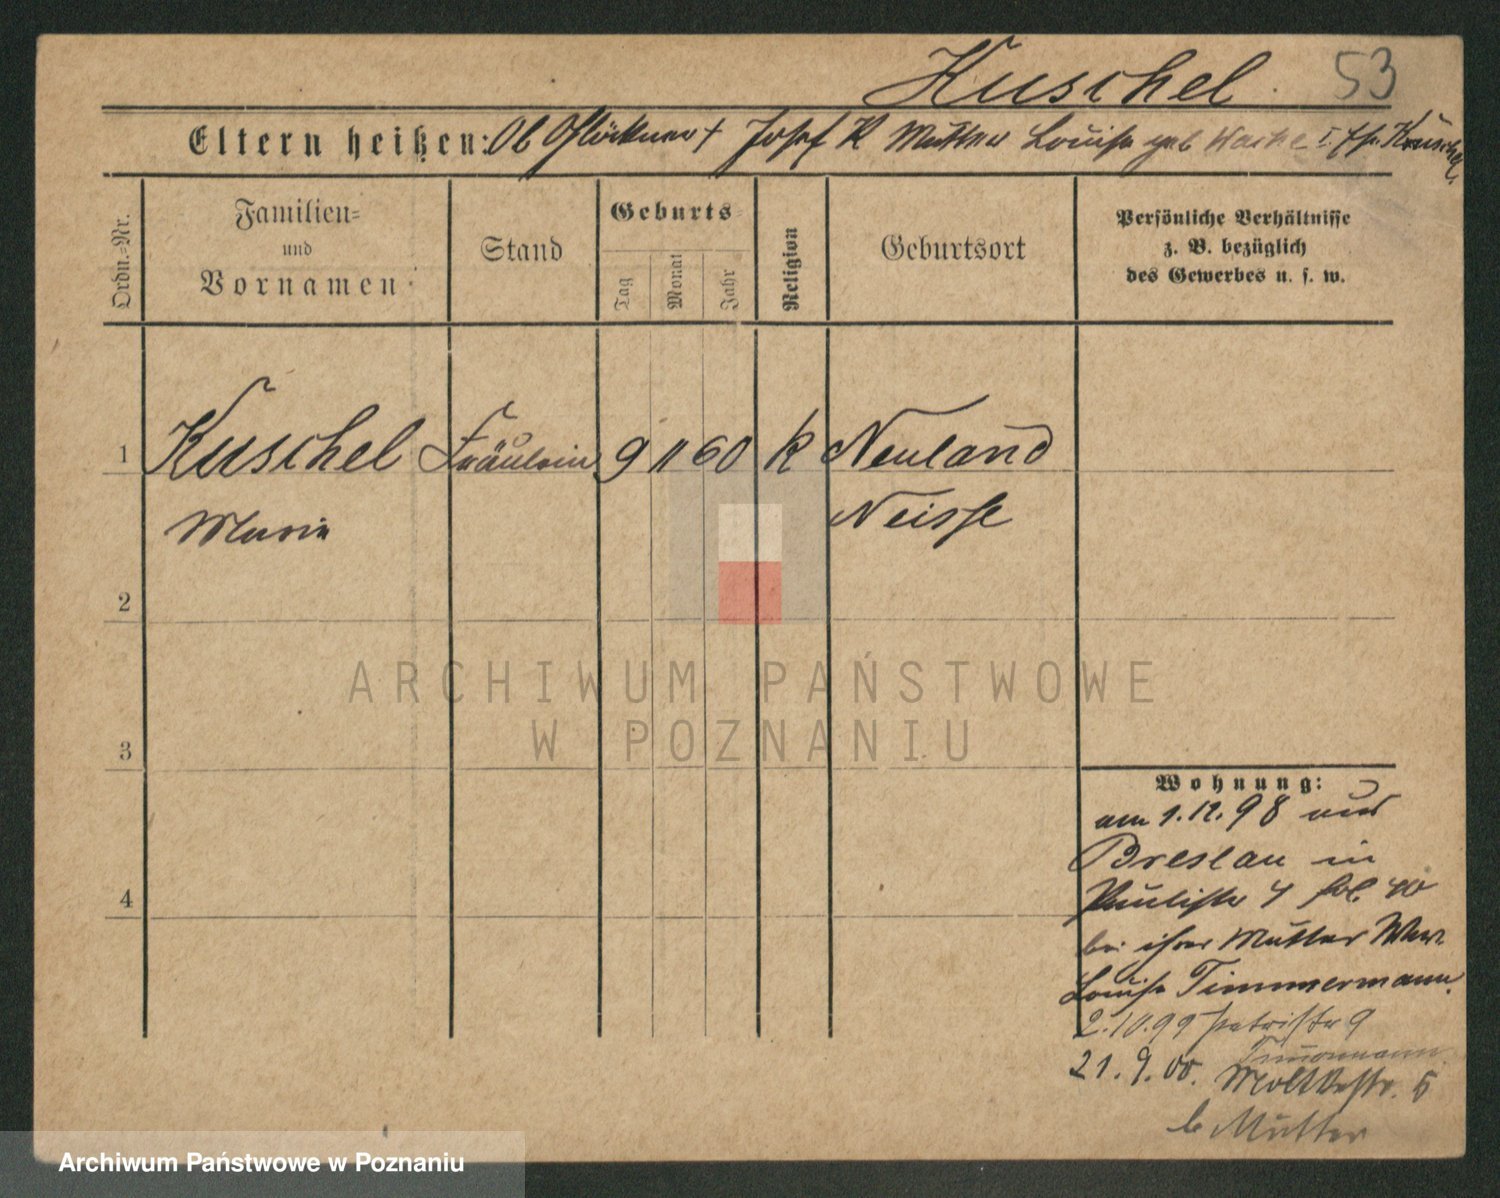 Kuschel 53
Eltern heißen: Ob Glöckner † Josef K Mutter Louise geb
Ordn.-Nr.
Familien-
und
Vornamen
Stand
Geburts
Tag
Monat
Jahr
Religion
Geburtsort
Persönliche Verhältnisse
z. B. bezüglich
des Gewerbes u. s. w.
1 Kuschel Fräulein 9 11 60 K Neuland
Marie Neisse
2
3
4
ARCHIWUM PAŃSTWOWE
W POZNANIU
Wohnung:
am 1.12.98 aus
Breslau in
Paulistr 4 bei ihrer Mutter Wwe.
Louise Timmermann.
2.10.99 Patristr 9
Timmermann.
21.9.00. Moltkestr. 5
b Mutter
Archiwum Państwowe w Poznaniu